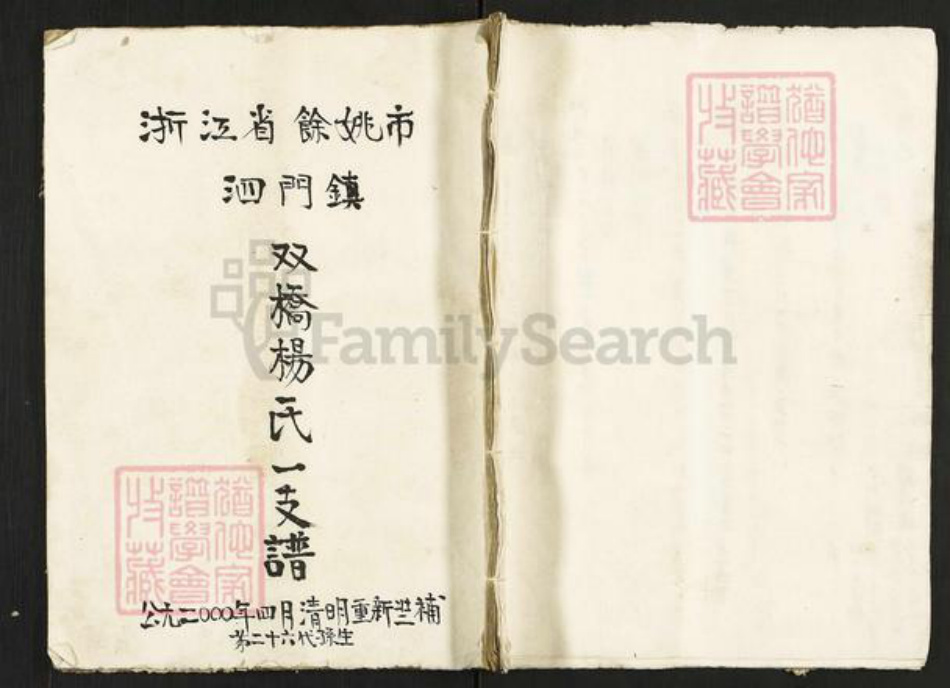 浙江省餘姚市
泗門鎮
双橋楊氏一支譜
公元二000年四月清明重新世補
第二十六代孫生
猶他家
譜學會
收藏
猶他家
譜學會
收藏
FamilySearch